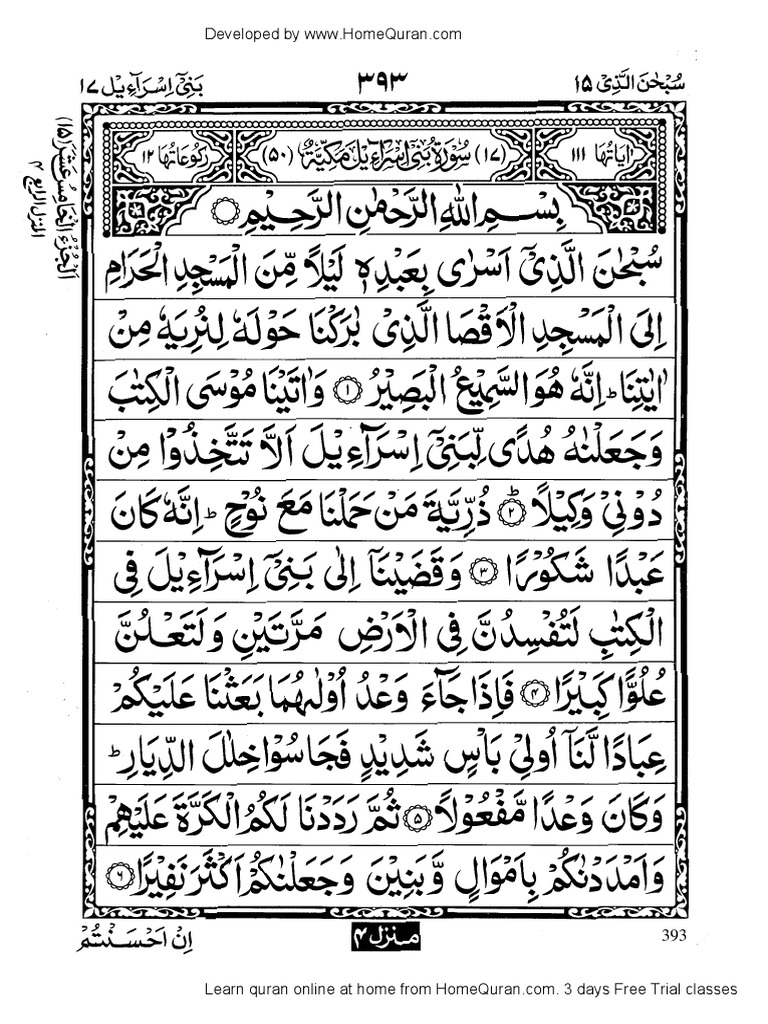 Developed by www.HomeQuran.com
سُبْحٰنَ الَّذِیْۤ ۱۵ ۳۹۳ بَنِیْۤ اِسْرَآءِیْل ۱۷
اَلْجُزْءُ الْخَامِسُ عَشَرَ (۱۵)
المنزل الرابع ۴
اٰیَاتُهَا ۱۱۱ (۱۷) سُوْرَةُ بَنِیْۤ اِسْرَآءِیْلَ مَكِّیَّةٌ (۵۰) رُكُوْعَاتُهَا ۱۲
بِسْمِ اللهِ الرَّحْمٰنِ الرَّحِیْمِ
سُبْحٰنَ الَّذِیْۤ اَسْرٰی بِعَبْدِهٖ لَیْلًا مِّنَ الْمَسْجِدِ الْحَرَامِ
اِلَی الْمَسْجِدِ الْاَقْصَا الَّذِیْ بٰرَكْنَا حَوْلَهٗ لِنُرِیَهٗ مِنْ
اٰیٰتِنَا ؕ اِنَّهٗ هُوَ السَّمِیْعُ الْبَصِیْرُ ۱ وَاٰتَیْنَا مُوْسَی الْكِتٰبَ
وَجَعَلْنٰهُ هُدًی لِّبَنِیْۤ اِسْرَآءِیْلَ اَلَّا تَتَّخِذُوْا مِنْ
دُوْنِیْ وَكِیْلًا ۲ؕ ذُرِّیَّةَ مَنْ حَمَلْنَا مَعَ نُوْحٍ ؕ اِنَّهٗ كَانَ
عَبْدًا شَكُوْرًا ۳ وَقَضَیْنَاۤ اِلٰی بَنِیْۤ اِسْرَآءِیْلَ فِی
الْكِتٰبِ لَتُفْسِدُنَّ فِی الْاَرْضِ مَرَّتَیْنِ وَلَتَعْلُنَّ
عُلُوًّا كَبِیْرًا ۴ فَاِذَا جَآءَ وَعْدُ اُوْلٰىهُمَا بَعَثْنَا عَلَیْكُمْ
عِبَادًا لَّنَاۤ اُولِیْ بَاْسٍ شَدِیْدٍ فَجَاسُوْا خِلٰلَ الدِّیَارِ ؕ
وَكَانَ وَعْدًا مَّفْعُوْلًا ۵ ثُمَّ رَدَدْنَا لَكُمُ الْكَرَّةَ عَلَیْهِمْ
وَاَمْدَدْنٰكُمْ بِاَمْوَالٍ وَّبَنِیْنَ وَجَعَلْنٰكُمْ اَكْثَرَ نَفِیْرًا ۶
393 منزل ۴ اِنْ اَحْسَنْتُمْ
Learn quran online at home from HomeQuran.com. 3 days Free Trial classes